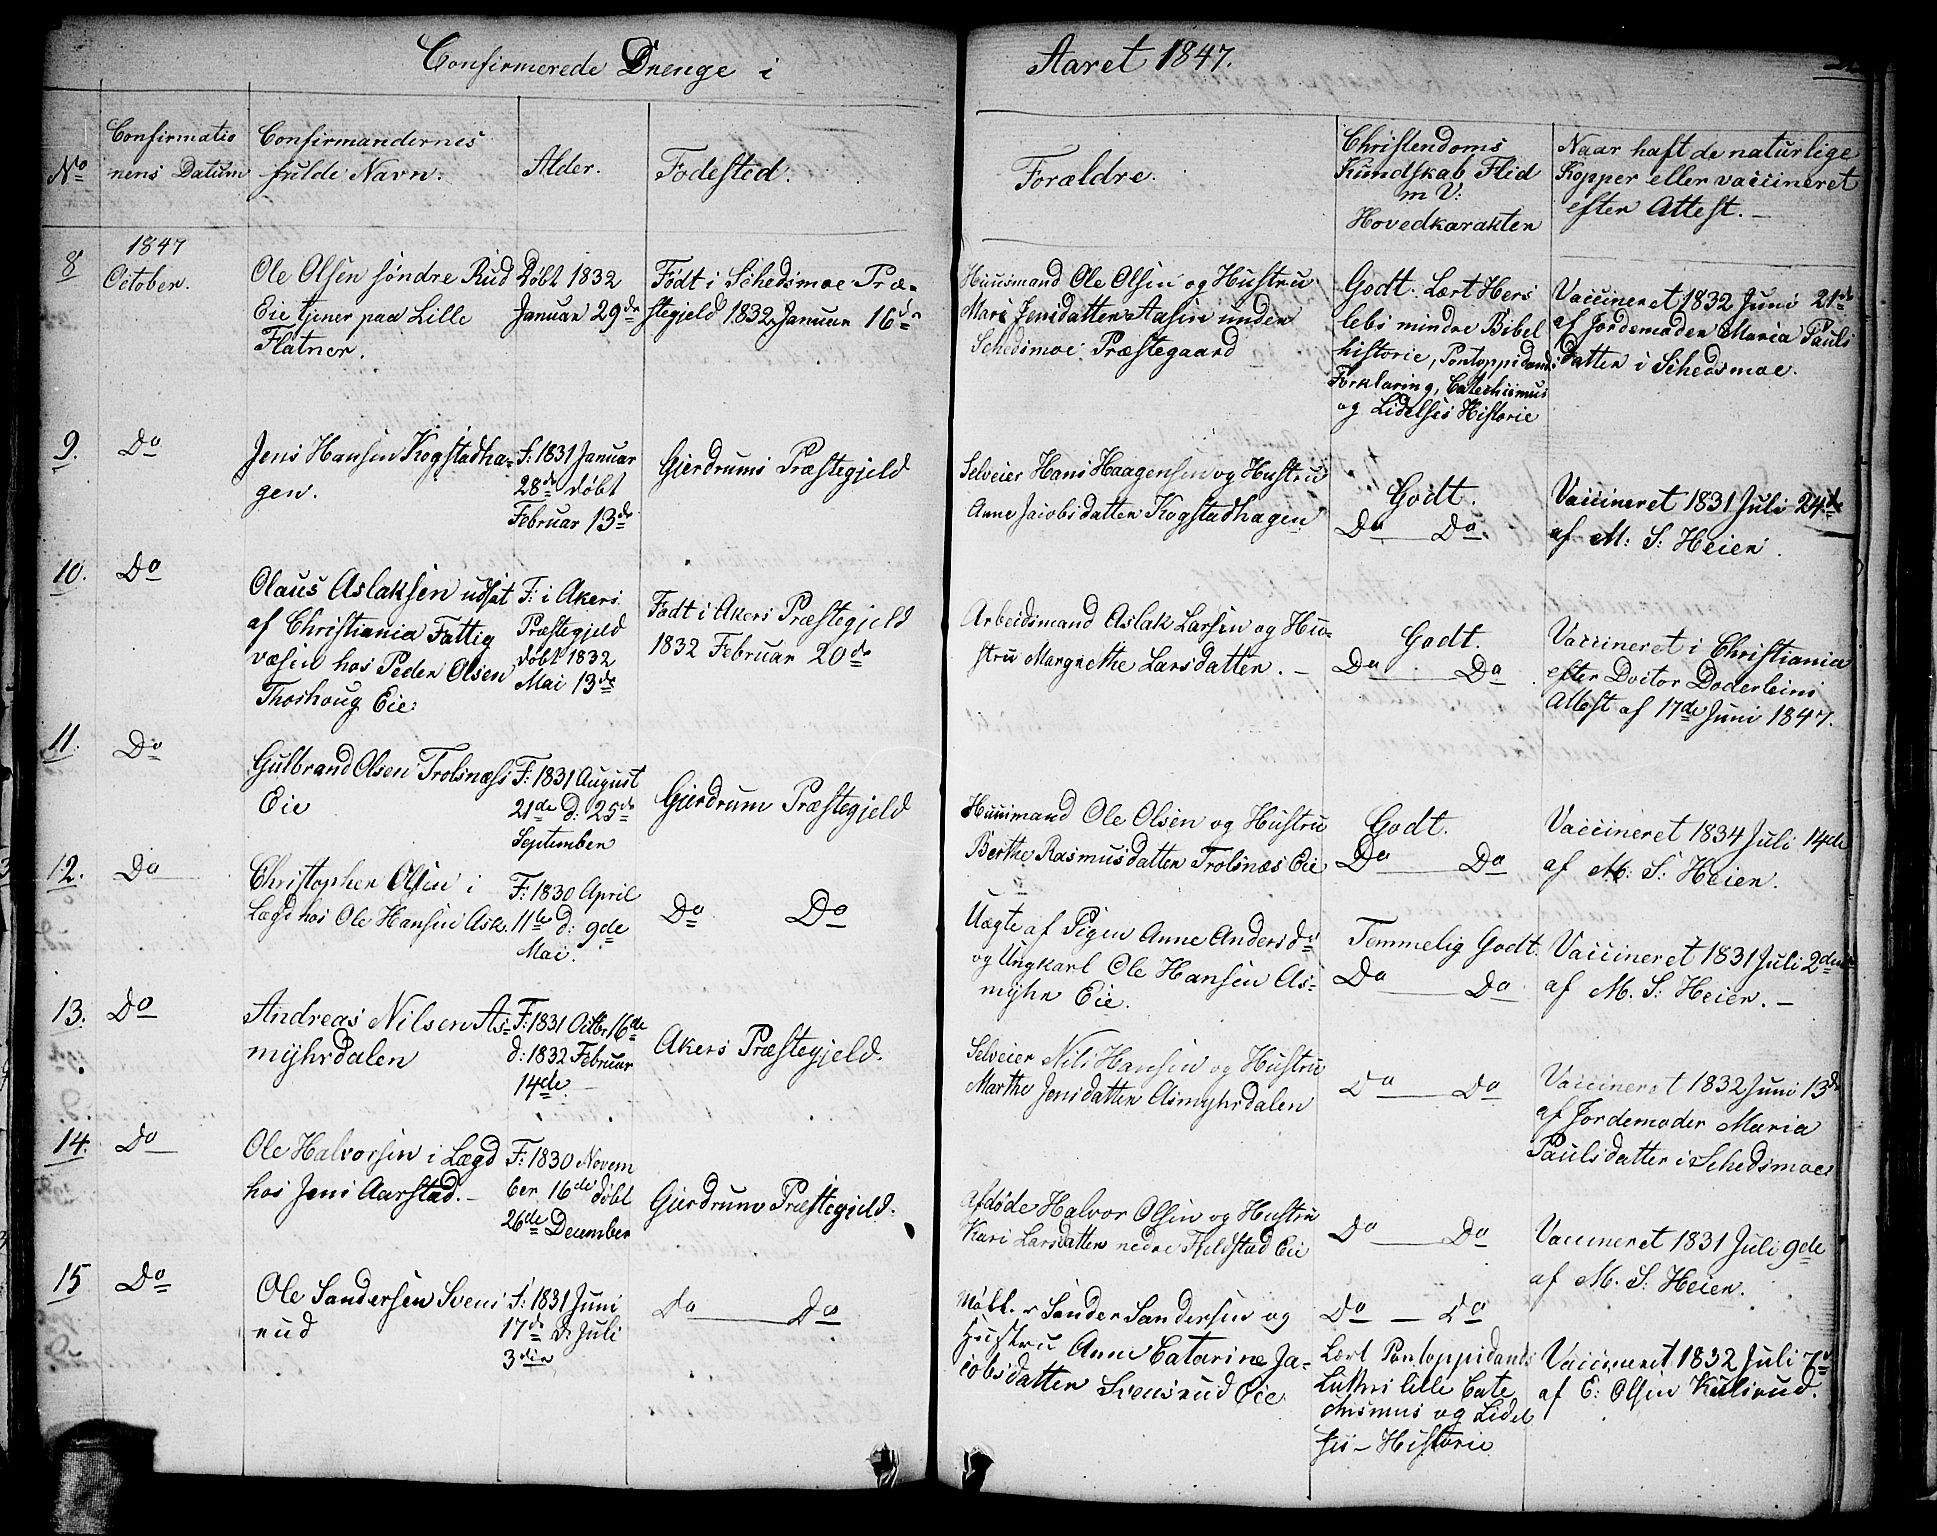 Confirmerede Drenge i Aaret 1847.
No
Confirmatio
nens Datum
Confirmandernes
fulde Navn.
Alder.
Fødested.
Forældre.
Christendoms
Kundskab Flid
m V:
Hovedkarakter
Naar haft de naturlige
Kopper eller vaccineret
efter Attest. —
8
1847
October.
Ole Olsen søndre Rud
Eie tjener paa Lille
Flatner.
Døbt 1832
Januar 29de
Født i Schedsmoe Præ-
stegjeld 1832 Januar 16de
Huusmand Ole Olsen og Hustru
Mari Jensdatter Aasen under
Schedsmoe Præstegaard
Godt. Lært Hers
lebs mindre Bibel
historie, Pontoppidans
Forklaring, Catechismus
og Lidelses Historie
Vaccineret 1832 Juni 21de
af Jordemoder Maria Pauls
datter i Schedsmoe.
9.
Do
Jens Hansen Kogstadha-
gen.
F: 1831 Januar
28de døbt
Februar 13de
Gjerdrums Præstegjeld
Selveier Hans Haagensen og Hustru
Anne Jacobsdatter Kogstadhagen
Godt.
Do — Do.
Vaccineret 1831 Juli 24de
af M: S: Heier.
10.
Do
Olaus Aslaksen udsat
af Christiania Fattig
væsen hos Peder Olsen
Thoshoug Eie.
F: i Akers
Præstegjeld
døbt 1832
Mai 13de
Født i Akers Præstegjeld
1832 Februar 20de
Arbeidsmand Aslak Larsen og Hu-
stru Margrethe Larsdatter. —
Godt.
Do — Do.
Vaccineret i Christiania
efter Doctor Døderleins
Attest af 17de Juni 1847.
11.
Do
Gulbrand Olsen Trolsnæss
Eie
F: 1831 August
21de d: 25de
September
Gjerdrum Præstegjeld
Huusmand Ole Olsen og Hustru
Berthe Rasmusdatter Trolsnæs Eie
Godt.
Do — Do
Vaccineret 1834 Juli 14de
af M: S: Heier.
12.
Do
Christopher Olsen i
Lægd hos Ole Hansen Ask.
F: 1830 April
11te d: 9de
Mai.
Do Do
Uægte af Pigen Anne Andersdr
og Ungkarl Ole Hansen As-
myhr Eie.
Temmelig Godt.
Do — Do
Vaccineret 1831 Juli 2den
af M. S: Heier. —
13.
Do
Andreas Nilsen As-
myhrdalen
F: 1831 Octbr 16de
d: 1832 Februar
14de. —
Akers Præstegjeld.
Selveier Nils Hansen og Hustru
Marthe Jensdatter Asmyhrdalen
Do — Do
Vaccineret 1832 Juni 13de
af Jordemoder Maria
Paulsdatter i Schedsmoe
14.
Do
Ole Halvorsen i Lægd
hos Jens Aarstad. —
F: 1830 Novem
ber 16de døbt
26de December
Gjerdrum Præstegjeld.
Afdøde Halvor Olsen og Hustru
Kari Larsdatter nedre Fieldstad Eie
Do — Do
Vaccineret 1831 Juli 9de
af M. S: Heier.
15
Do
Ole Sandersen Svens
rud
F: 1831 Juni
17de d. Juli
3die
Do — Do
Sander Sandersen og
Hustru Anne Catarine Ja-
cobsdatter Svensrud Eie
Do — Do
Lært Pontoppidans
Luthri lille Cate
chismus og Lidel
ses — Historie
Vaccineret 1832 Juli 7de
af E: Olsen Kulsrud.